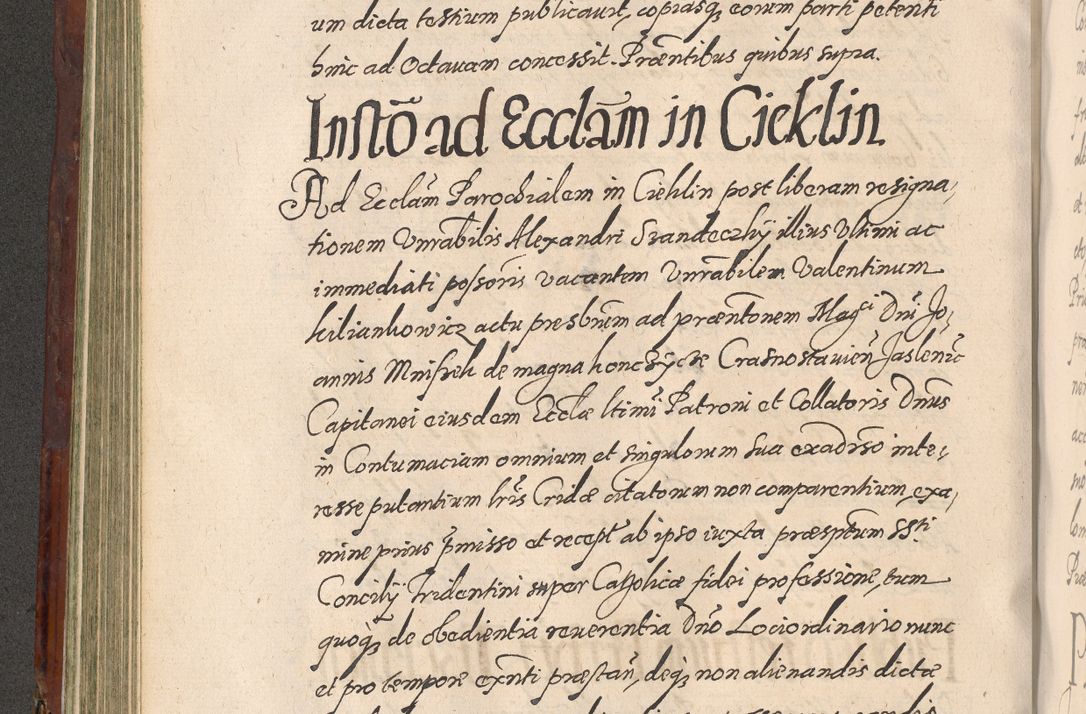 um dicta testium publicavit, copiasq₃ eorum parti petenti
hinc ad Octavam concessit. Præntibus quibus supra.
Instō ad Ecclām in Cieklin
Ad Ecclām Parochialem in Cieklin post liberam resigna,
tionem Vnrabilis Alexandri Szandeczky illius Vltimi ac
immediati possoris vacantem Vnrabilem Valentinum
kiliankowicz actu presbrēm ad præntonem Magci Dni Jo,
annis Mnisreh de magna konczycze Crasnostavien̄ Jaslenīc
Capitanei eiusdem Ecclæ ltimi Patroni et Collatoris Dnūs
in Contumaciam omnium et singulorum sua exadrso inte,
resse putantium lrīs Cridæ citatorum non comparentium, exa,
mine prius pmisso et recept ab ipso iuxta præsptum SSti
Concilÿ Tridentini super Catholicæ fidei professione, tum
quoq₃ de obedientia reverentia Dno Lociordinario nunc
et pro tempore exnti præstan̄, deq₃ non alienandis dictæ